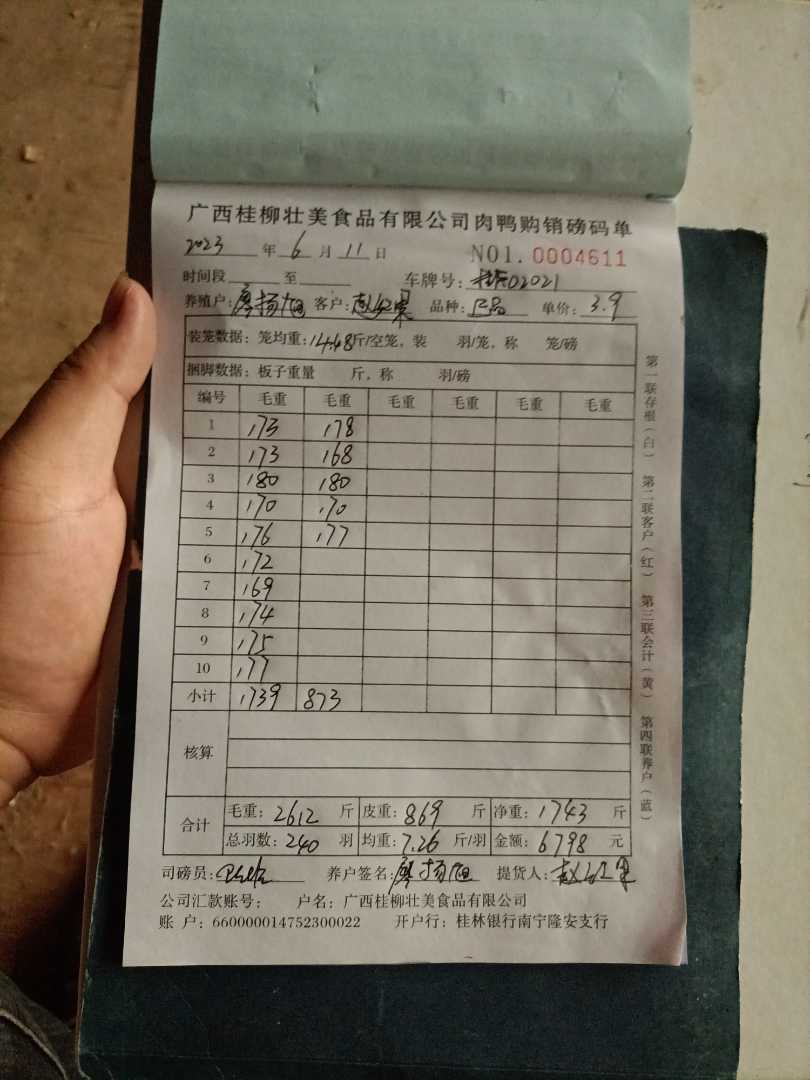 广西桂柳壮美食品有限公司肉鸭购销磅码单
2023 年 6 月 11 日 NO1. 0004611
时间段 至 车牌号: 02021
养殖户: 廖扬旭 客户: 品种: 单价: 3.9
装笼数据: 笼均重: 14.48斤/空笼, 装 羽/笼, 称 笼/磅
捆脚数据: 板子重量 斤, 称 羽/磅
编号 毛重 毛重 毛重 毛重 毛重 毛重
1 173 178
2 173 168
3 180 180
4 170 170
5 176 177
6 172
7 169
8 174
9 175
10 177
小计 1739 873
核算
合计 毛重: 2612 斤 皮重: 869 斤 净重: 1743 斤
总羽数: 240 羽 均重: 7.26 斤/羽 金额: 6798 元
司磅员: 养户签名: 廖扬旭 提货人:
公司汇款账号: 户名: 广西桂柳壮美食品有限公司
账 户: 660000014752300022 开户行: 桂林银行南宁隆安支行
第一联存根(白) 第二联客户(红) 第三联会计(黄) 第四联养户(蓝)